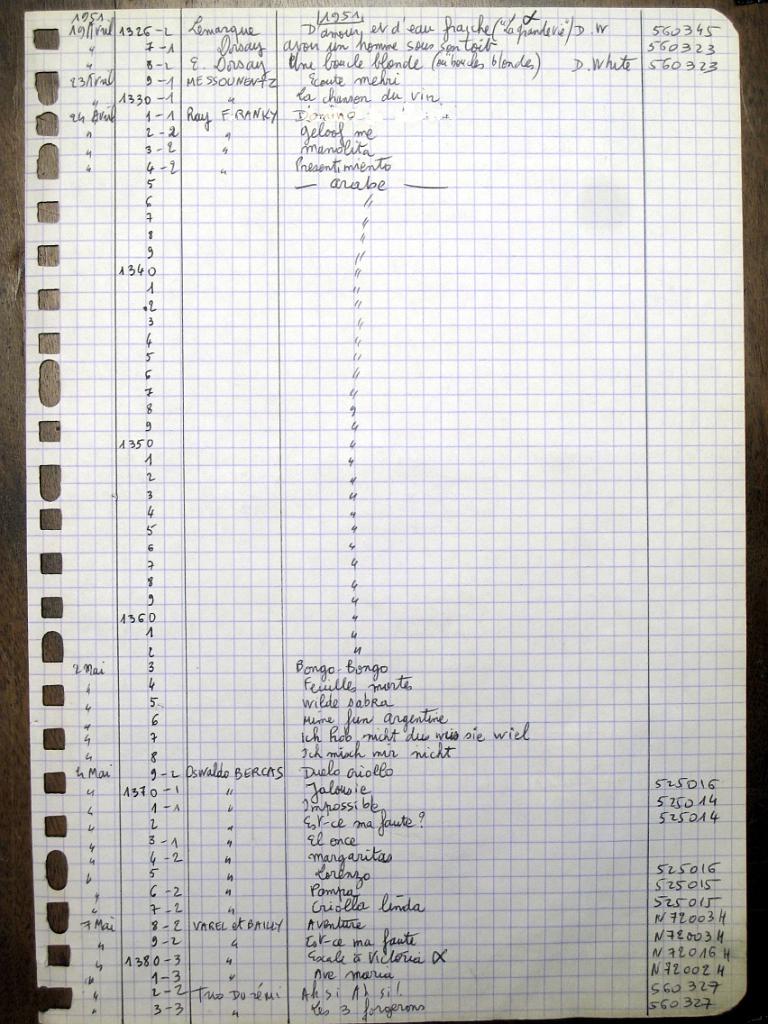 1951 1951
19 Avril 1326-2 Lemarque D'amour et d'eau fraîche ("La grande vie") D.W 560345
" 7-1 Dorsay avoir un homme sous son toit 560323
" 8-2 E. Dorsay Une boucle blonde (ou boucles blondes) D. White 560323
23 Avril 9-1 MESSOUNENTZ Ecoute mehri
" 1330-1 " La chanson du vin
24 Avril 1-1 Ray FRANKY Domino
" 2-2 " geloof me
" 3-2 " manolita
" 4-2 " Presentimiento
5 — arabe —
6 "
7 "
8 "
9 "
1340 "
1 "
2 "
3 "
4 "
5 "
6 "
7 "
8 "
9 "
1350 "
1 "
2 "
3 "
4 "
5 "
6 "
7 "
8 "
9 "
1360 "
1 "
2 "
2 Mai 3 Bongo-Bongo
" 4 Feuilles mortes
" 5 Wilde sabra
" 6 Mime fun argentine
" 7 Ich hob nicht du sie wiel
" 8 Ich misch mir nicht
4 Mai 9-2 Oswaldo BERCAS Duelo criollo
" 1370-1 " Jalousie 525016
" 1-1 " Impossible 525014
" 2 " Est-ce ma faute? 525014
" 3-1 " El once
" 4-2 " margaritas
" 5 " Lorenzo 525016
" 6-2 " Pampa 525015
" 7-2 " Criolla linda 525015
7 Mai 8-2 VAREL et BAILLY Aventure N72003H
" 9-2 " Est-ce ma faute N72003H
" 1380-3 " Escale à Victoria N72016H
" 1-3 " Ave maria N72002H
" 2-2 Trio Do ré mi Ah si Ah si! 560327
" 3-3 " Les 3 forgerons 560327